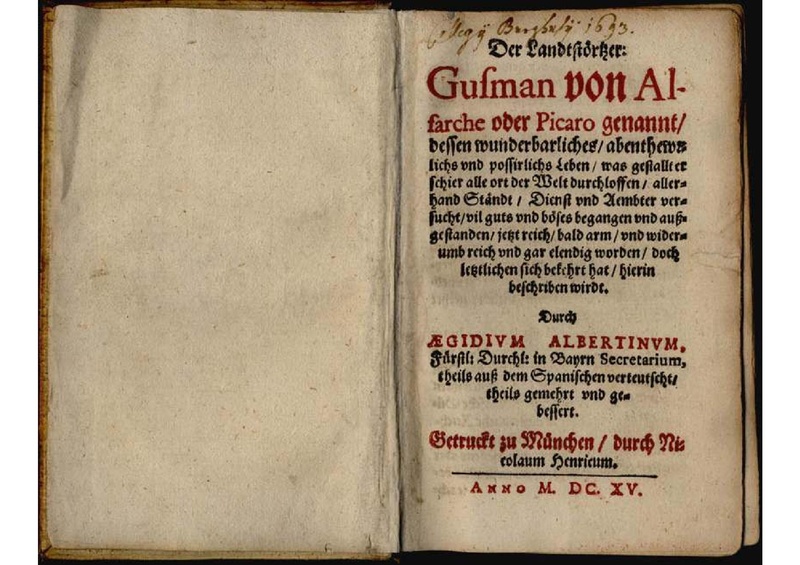 1693.
Der Landtstörtzer:
Gusman von Al-
farche oder Picaro genannt/
dessen wunderbarliches/ abenthewr-
lichs vnd possirlichs Leben/ was gestallt er
schier alle ort der Welt durchloffen/ aller-
hand Ständt/ Dienst vnd Aembter ver-
sucht/ vil guts vnd böses begangen vnd auß-
gestanden/ jetzt reich/ bald arm/ vnd wider-
umb reich vnd gar elendig worden/ doch
letztlichen sich bekehrt hat/ hierin
beschriben wirdt.
Durch
ÆGIDIVM ALBERTINVM,
Fürstl: Durchl: in Bayrn Secretarium,
theils auß dem Spanischen verteutscht/
theils gemehrt vnd ge-
bessert.
Getruckt zu München/ durch Ni-
colaum Henricum.
ANNO M. DC. XV.